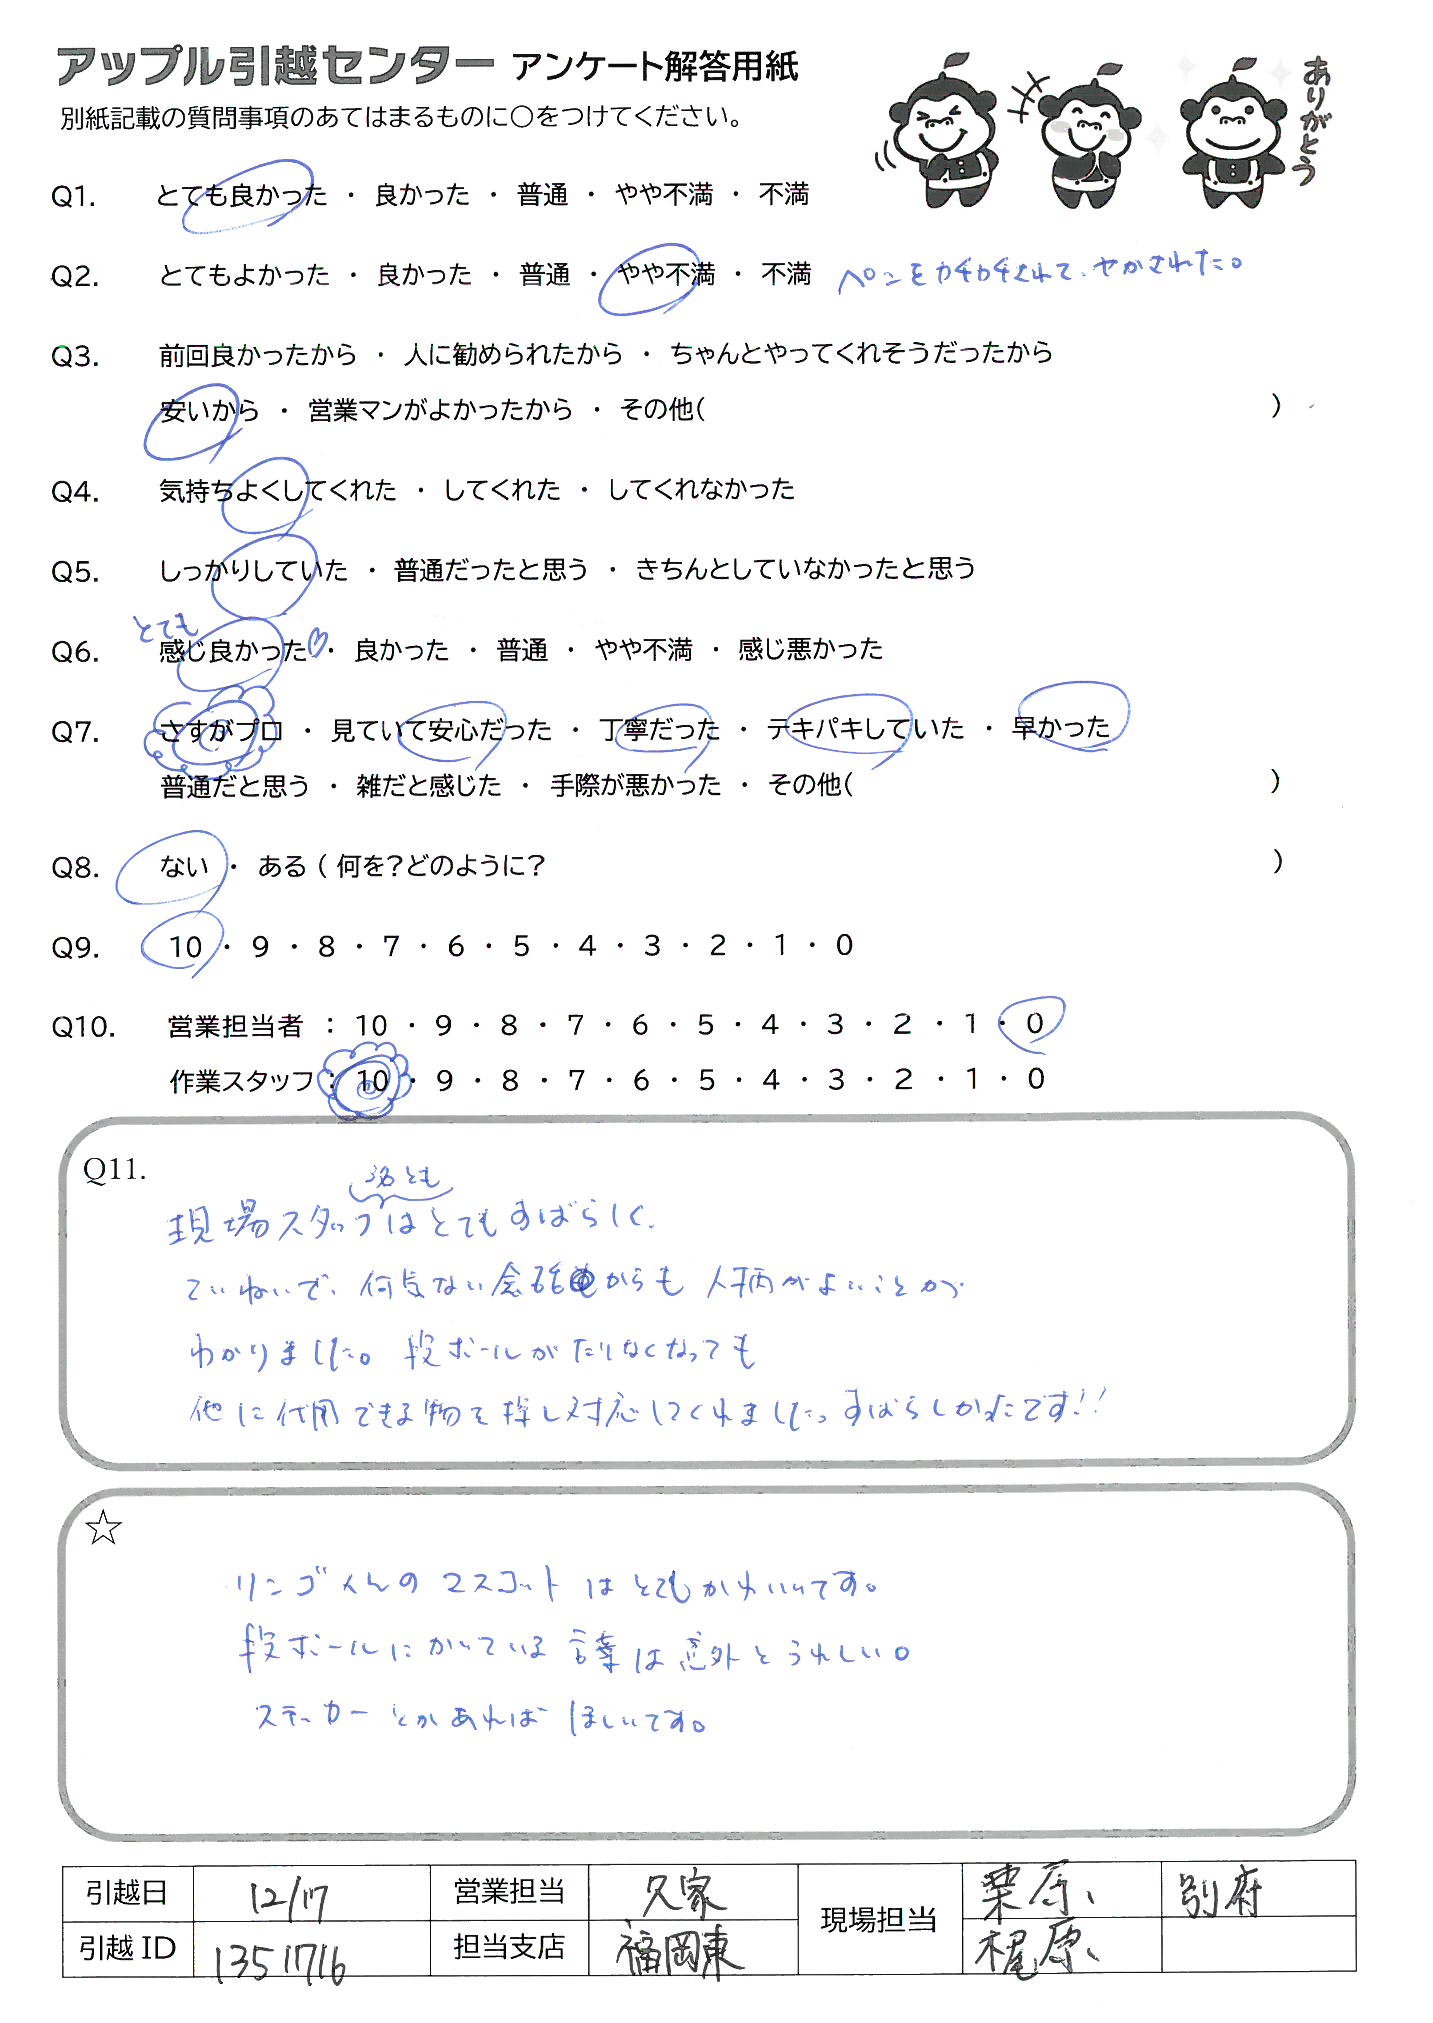 アップル引越センター アンケート解答用紙
別紙記載の質問事項のあてはまるものに○をつけてください。
ありがとう
Q1. とても良かった ・ 良かった ・ 普通 ・ やや不満 ・ 不満
Q2. とてもよかった ・ 良かった ・ 普通 ・ やや不満 ・ 不満 ペンをカチカチされて、せかされた。
Q3. 前回良かったから ・ 人に勧められたから ・ ちゃんとやってくれそうだったから
安いから ・ 営業マンがよかったから ・ その他( )
Q4. 気持ちよくしてくれた ・ してくれた ・ してくれなかった
Q5. しっかりしていた ・ 普通だったと思う ・ きちんとしていなかったと思う
とても
Q6. 感じ良かった♡・ 良かった ・ 普通 ・ やや不満 ・ 感じ悪かった
Q7. さすがプロ ・ 見ていて安心だった ・ 丁寧だった ・ テキパキしていた ・ 早かった
普通だと思う ・ 雑だと感じた ・ 手際が悪かった ・ その他( )
Q8. ない ・ ある ( 何を?どのように? )
Q9. 10 ・ 9 ・ 8 ・ 7 ・ 6 ・ 5 ・ 4 ・ 3 ・ 2 ・ 1 ・ 0
Q10. 営業担当者 : 10 ・ 9 ・ 8 ・ 7 ・ 6 ・ 5 ・ 4 ・ 3 ・ 2 ・ 1 ・ 0
作業スタッフ : 10 ・ 9 ・ 8 ・ 7 ・ 6 ・ 5 ・ 4 ・ 3 ・ 2 ・ 1 ・ 0
Q11.
3名とも
現場スタッフはとてもすばらしく、
ていねいで、何気ない会話からも人柄がよいことが
わかりました。段ボールがたりなくなっても
他に代用できる物を探し対応してくれました。すばらしかったです!!
☆
リンゴくんのマスコットはとてもかわいいです。
段ボールにかいている言葉は意外とうれしい。
ステッカーとかあればほしいです。
引越日 12/17 営業担当 久家 現場担当 栗原、 別府
引越ID 1351716 担当支店 福岡東 梶原、